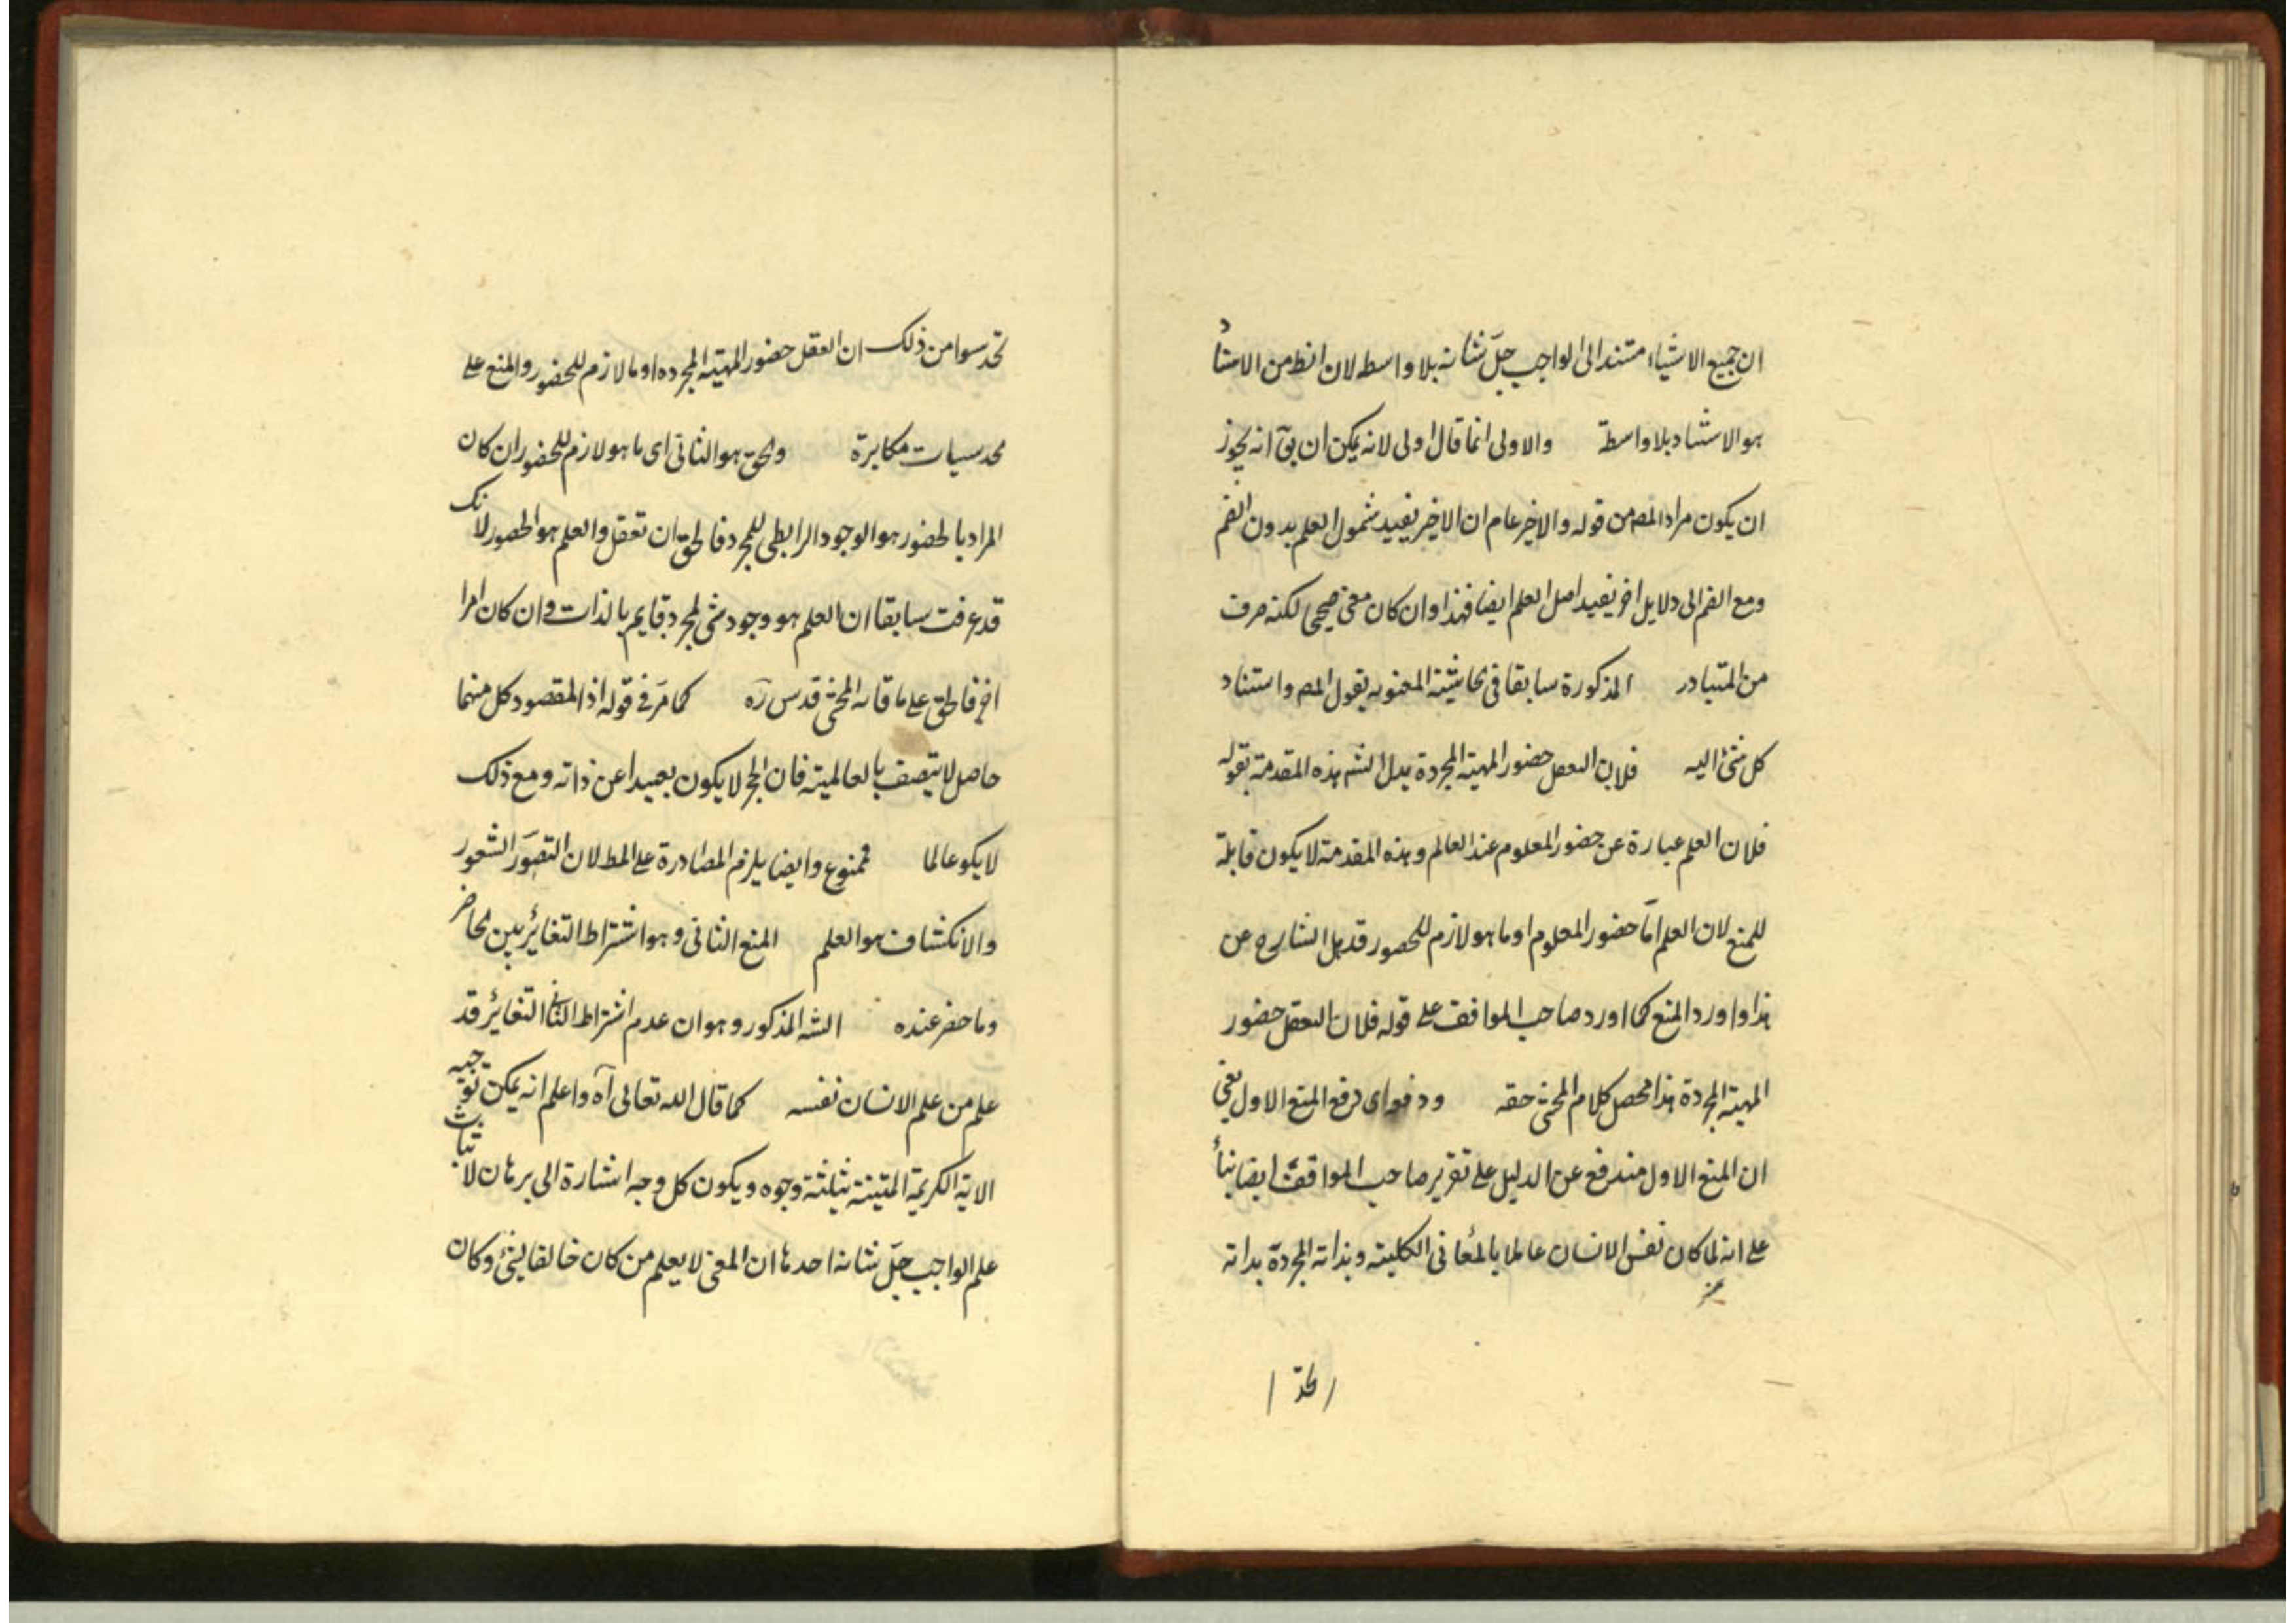 ان جميع الاشياء مستند الى الواجب جلّ شانه بلا واسطه لان الظ من الاستناد
هو الاستناد بلا واسطة والاولى انما قال اولى لانه يمكن ان يقٓ انه يجوز
ان يكون مراد المصه من قوله والاخير عام ان الاخير يفيد شمول العلم بدون الضم
ومع الضم الى دلايل اخر يفيد اصل العلم ايضا فهذا وان كان معنى صحيحا لكنه صرف
من المتبادر المذكورة سابقا فى الحاشية المعنونه بقول المصه واستناد
كل شئ اليه فلان التعقل حضور المهية المجردة بدل الشه هذه المقدمة بقوله
فلان العلم عبارة عن حضور المعلوم عند العالم وهذه المقدمة لا يكون قابلة
للمنع لان العلم امّا حضور المعلوم او ما هو لازم للحضور قد بدل الشارح عن
هذا واورد المنع كما اورد صاحب المواقف على قوله فلان التعقل حضور
المهية المجردة هذا محصل كلام المحشى حقه ودفعه اى دفع المنع الاول يعنى
ان المنع الاول مندفع عن الدليل على تقرير صاحب المواقف ايضا بناء
على انه لما كان نفس الانسان عالما بالمعانى الكلية وبذاته المجردة بذاته
تحدسوا من ذلك ان العقل حضور المهية المجرده او ما لازم للحضور والمنع على
الحدسيات مكابرة والحق هو الثانى اى ما هو لازم للحضور ان كان
المراد بالحضور هو الوجود الرابطى للمجرد فالحق ان تعقل والعلم هو الحضور لانك
قد عرفت سابقا ان العلم هو وجود شئ لمجرد قايم بالذات وان كان امرا
اخر فالحق على ما قاله المحشى قدس رٓه كما مرّ فى قوله اذ المقصود كل منهما
حاصل لا يتصف بالعالمية فان الحجر لا يكون بعيدا عن ذاته ومع ذلك
لا يكو عالما فممنوع وايضا يلزم المصادرة على المط لان التصوّر الشعور
والانكشاف هو العلم المنع الثانى وهو اشتراط التغاير بين الحاضر
وما حضر عنده الشه المذكور وهو ان عدم اشتراط الثانى التغاير قد
علم من علم الانسان نفسه كما قال الله تعالى آه واعلم انه يمكن توجيه
الاية الكريمة المتينة بثلثة وجوه ويكون كل وجه اشارة الى برهان لاثبات
علم الواجب جلّ شانه احدها ان المعنى لا يعلم من كان خالقا لشئ وكان